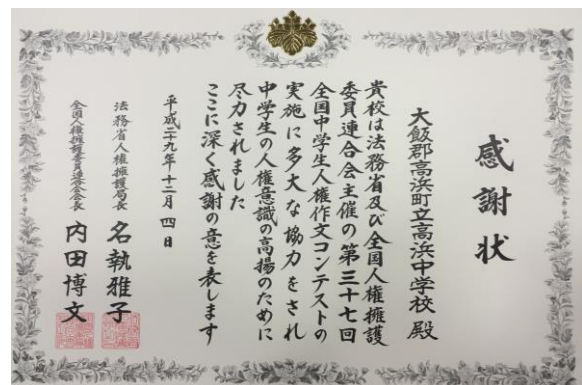 感謝状
大飯郡高浜町立高浜中学校 殿
貴校は法務省及び全国人権擁護
委員連合会主催の第三十七回
全国中学生人権作文コンテストの
実施に多大な協力をされ
中学生の人権意識の高揚のために
尽力されました
ここに深く感謝の意を表します
平成二十九年十二月四日
法務省人権擁護局長 名執雅子
全国人権擁護委員連合会会長 内田博文